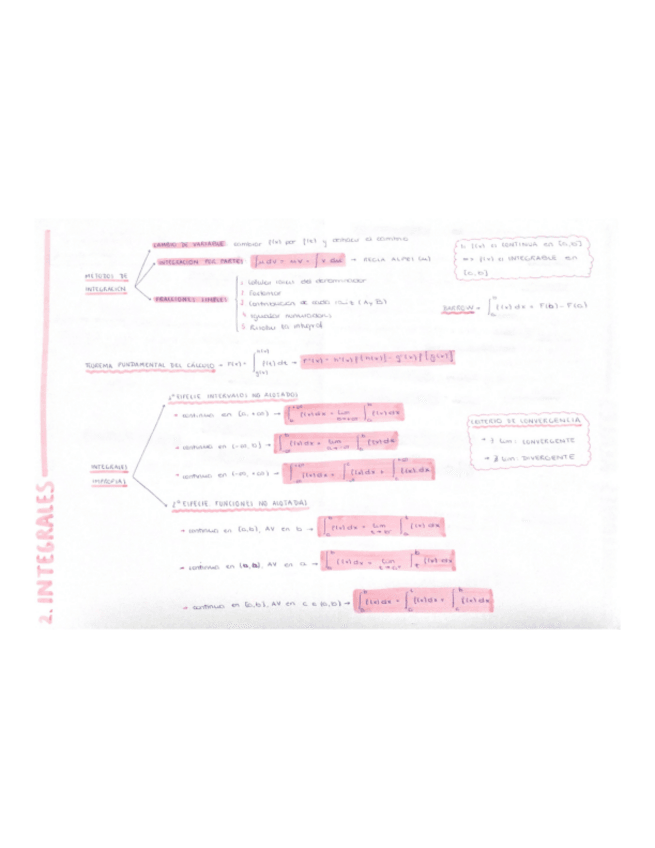 2. INTEGRALES
MÉTODOS DE INTEGRACIÓN
CAMBIO DE VARIABLE: cambiar f(x) por f(t) y el dominio
INTEGRACIÓN POR PARTES ∫u dv = uv - ∫v du → REGLA ALPES
FRACCIONES SIMPLES
1. Calcular raíces del denominador
2. Factorizar
3. Combinación de (A y B)
4. Igualar numeradores
5. Resolver la integral
Si f(x) es CONTINUA en [a,b]
=> f(x) es INTEGRABLE en
[a,b]
BARROW = ∫ f(x) dx = F(b) - F(a)
TEOREMA FUNDAMENTAL DEL CÁLCULO = F(x) = ∫ f(t) dt → F'(x) = h'(x) f[h(x)] - g'(x) f[g(x)]
INTEGRALES IMPROPIAS
1ª ESPECIE: INTERVALOS NO ACOTADOS
→ continua en [a, +∞) → ∫ f(x) dx = lim ∫ f(x) dx
→ continua en (-∞, b] → ∫ f(x) dx = lim ∫ f(x) dx
→ continua en (-∞, +∞) → ∫ f(x) dx = ∫ f(x) dx + ∫ f(x) dx
CRITERIO DE CONVERGENCIA
→ ∃ lim: CONVERGENTE
→ ∄ lim: DIVERGENTE
2ª ESPECIE: FUNCIONES NO ACOTADAS
→ continua en [a,b), AV en b → ∫ f(x) dx = lim ∫ f(x) dx
→ continua en (a,b], AV en a → ∫ f(x) dx = lim ∫ f(x) dx
→ continua en [a,b], AV en c ∈ (a,b) → ∫ f(x) dx = ∫ f(x) dx + ∫ f(x) dx